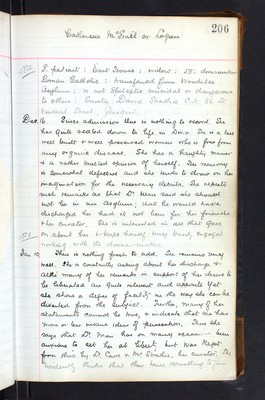 206
Catherine McPhail or Logan
P. patient : East House : widow : 58 : dressmaker
Roman Catholic : transferred from Woodilee
Asylum ; is not Epileptic suicidal or dangerous
to others :
Vincent Street, Glasgow.
Dec. 16. Since admission there is nothing to record. She
has quite settled down to life in this. She is a lean
well built & well preserved woman who is free from
any organic disease. She has a haughty manner
& a rather exalted opinion of herself. Her memory
is somewhat defective and she tends to draw on her
imagination for the necessary details. She repeats
that Dr. said she should
not be in an Asylum ; that he would have
discharged her had it not been for her friends
& her curator. She is interested in all that goes
on about her & keeps herself very busy, engaged
working with the dressmaker.
Jan. 10. There is nothing fresh to add. She remains very
well. She is constantly asking about her discharge &
altho many of her remarks in support of her desire to
be liberated are quite relevant and apposite yet
she shows a degree of facility in the way she can be
diverted from the subject. Further, many of her
statements cannot be true, & indicate that she has
more or less insane ideas of persecution. Thus she
says that Dr. has on many occasions been
anxious to set her at liberty but was kept
from this by Dr. Carre & Mr. her curator. She
evidently thinks that they have something to gain